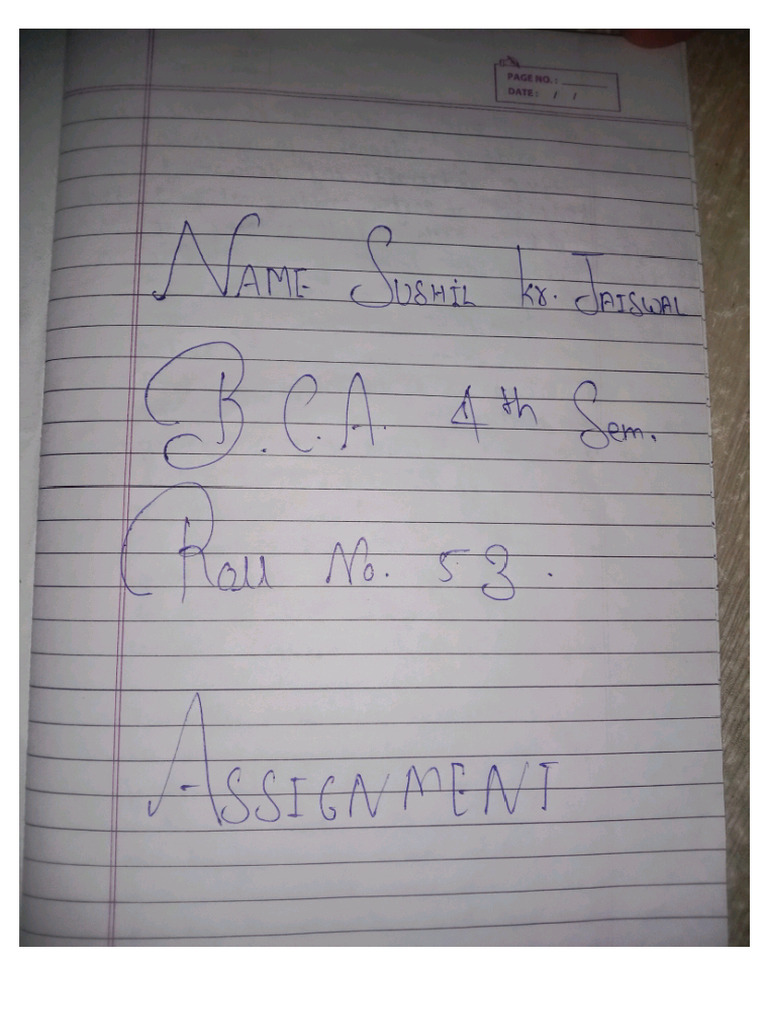 PAGE NO. :
DATE : / /
NAME SUSHIL Kr. JAISWAL
B.C.A. 4th Sem.
Roll No. 53.
ASSIGNMENT